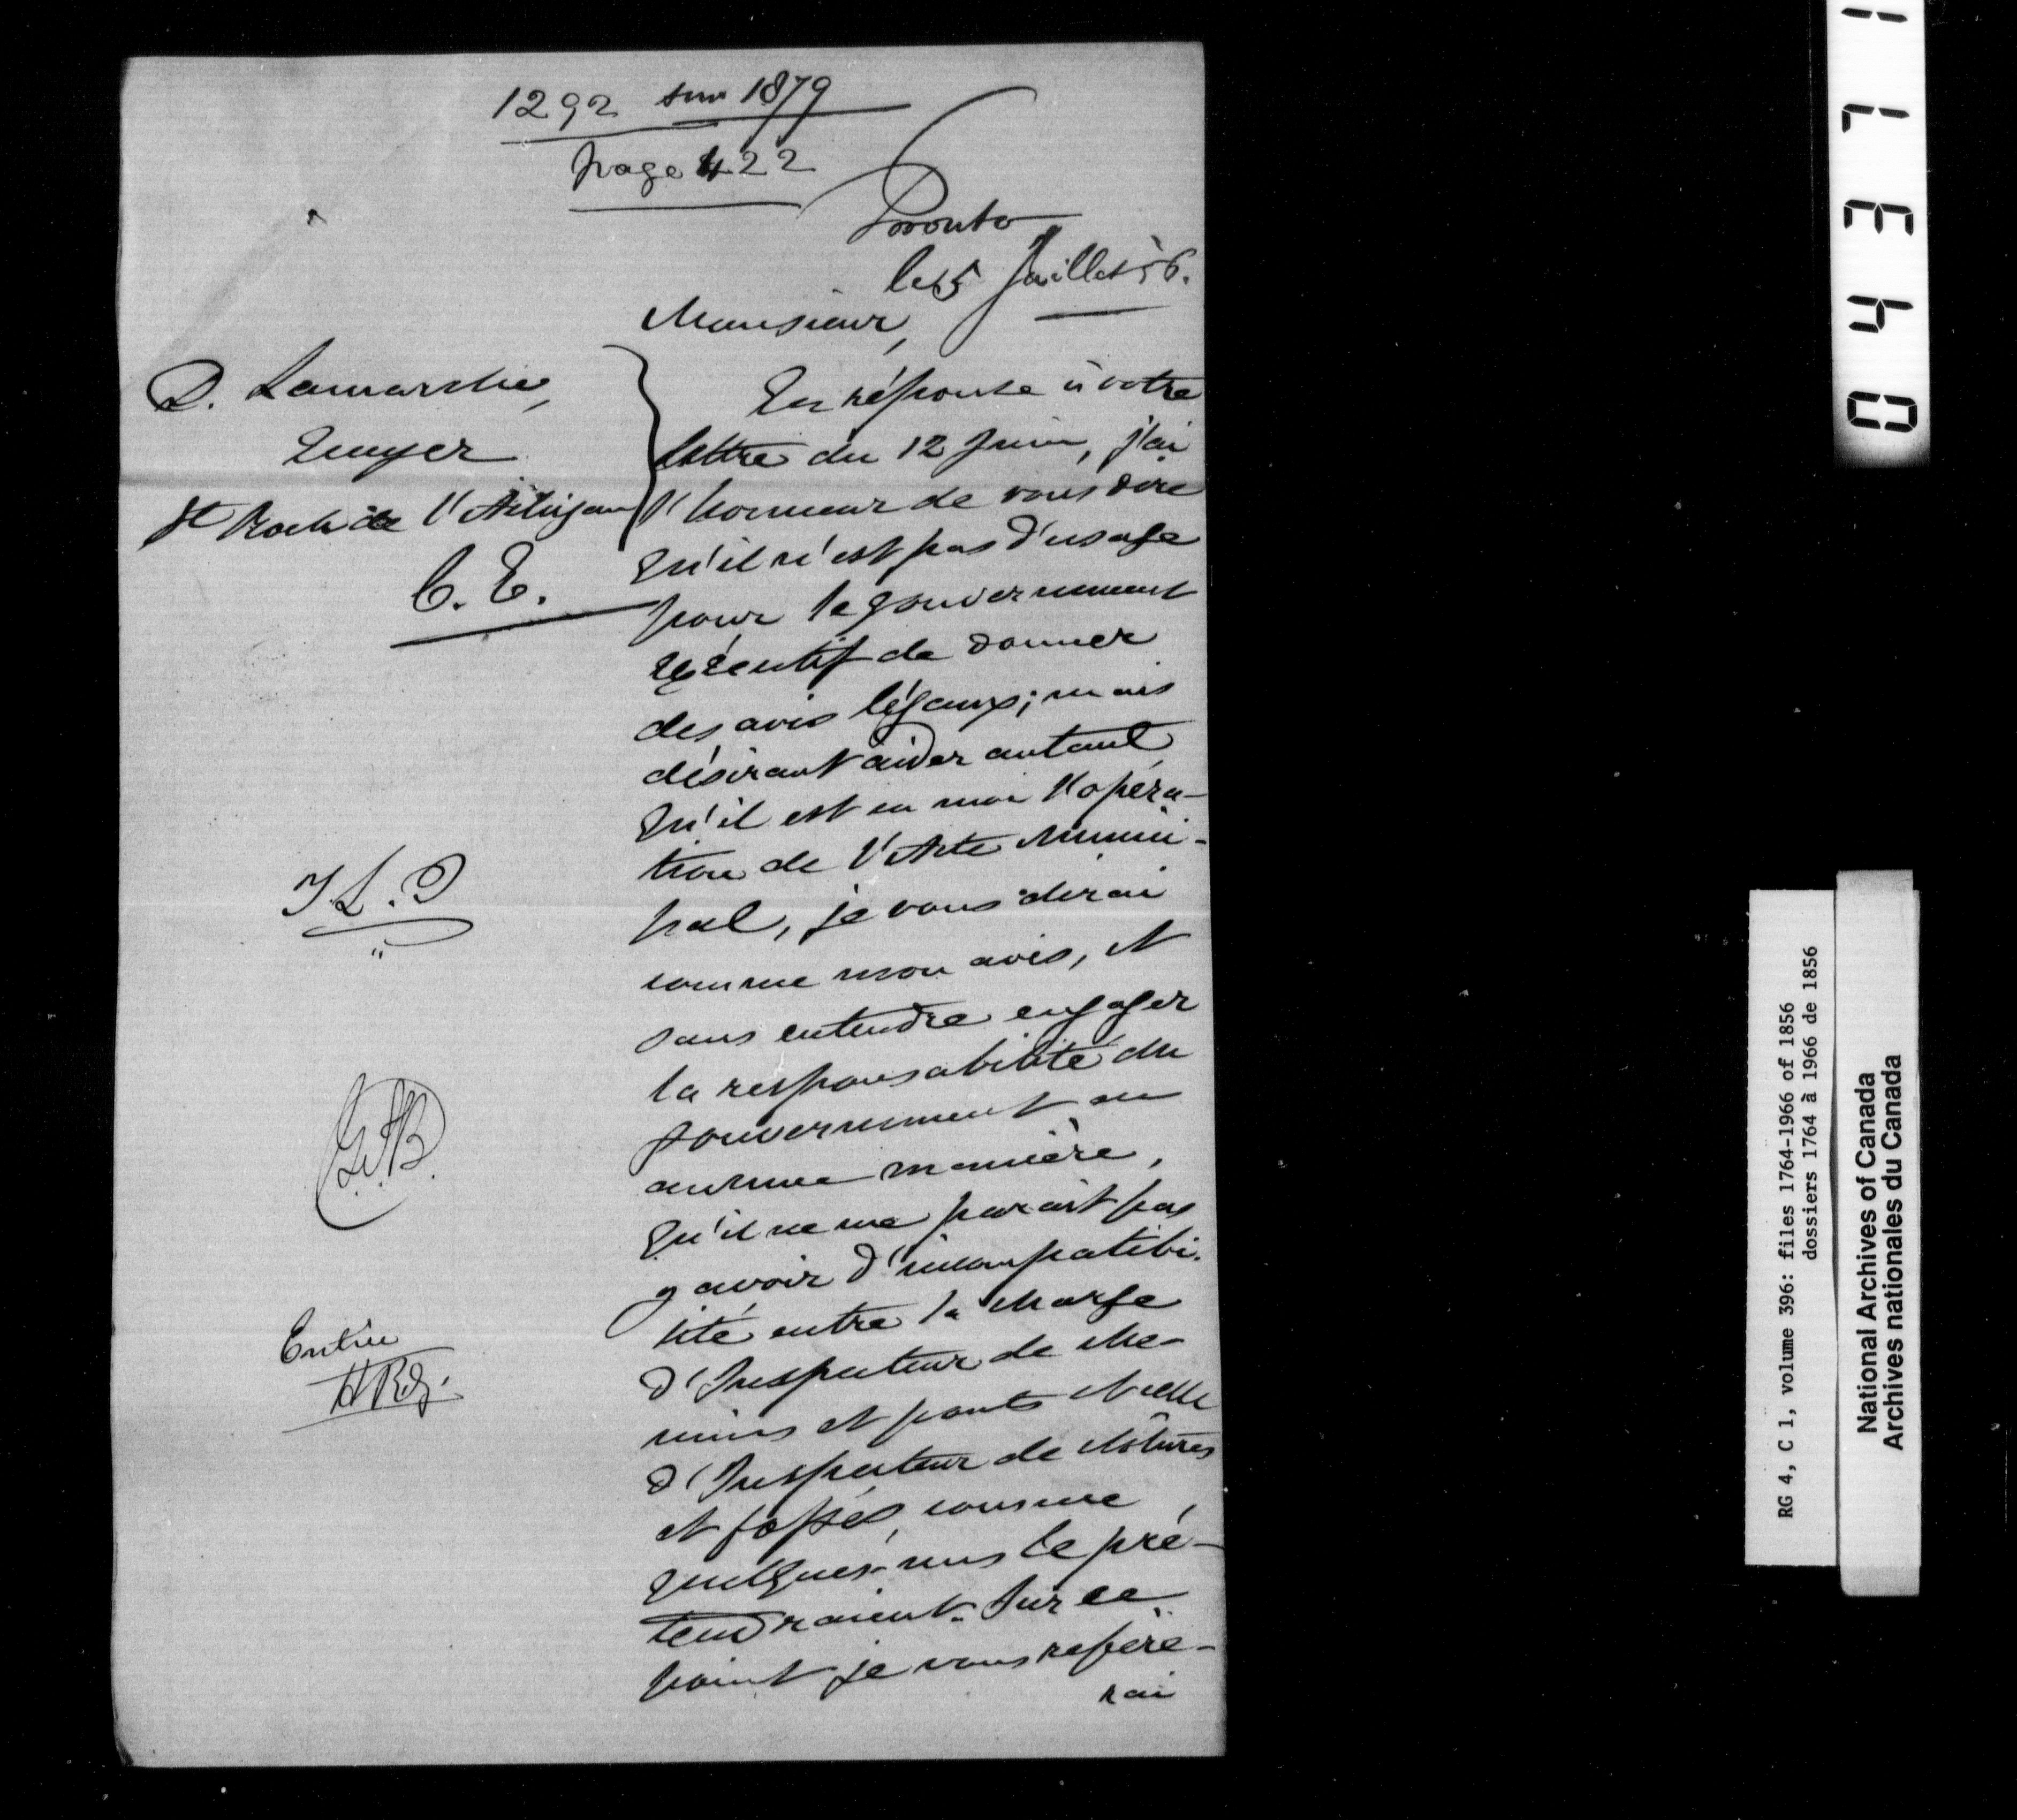 1292 sur 1879
page 422
Toronto
le 5 Juillet 56.
Monsieur,
D. Lamarche,
Ecuyer
St Roch de l'Achigan
C. E.
En réponse à votre
lettre du 12 Juin, j'ai
l'honneur de vous dire
qu'il n'est pas d'usage
pour le gouvernement
exécutif de donner
des avis légaux; mais
désirant aider autant
qu'il est en moi l'opéra-
tion de l'Acte Munici-
pal, je vous dirai
comme mon avis, et
sans entendre engager
la responsabilité du
gouvernement en
aucune manière,
qu'il ne me parait pas
y avoir d'incompatibi-
lité entre la charge
d'Inspecteur de che-
mins et ponts et celle
d'Inspecteur de clôtures
et fossés, comme
quelques-uns le pré-
tendraient. Sur ce
point je vous refère-
rai
Entrée
National Archives of Canada
Archives nationales du Canada
RG 4, C 1, volume 396: files 1764-1966 of 1856
dossiers 1764 à 1966 de 1856